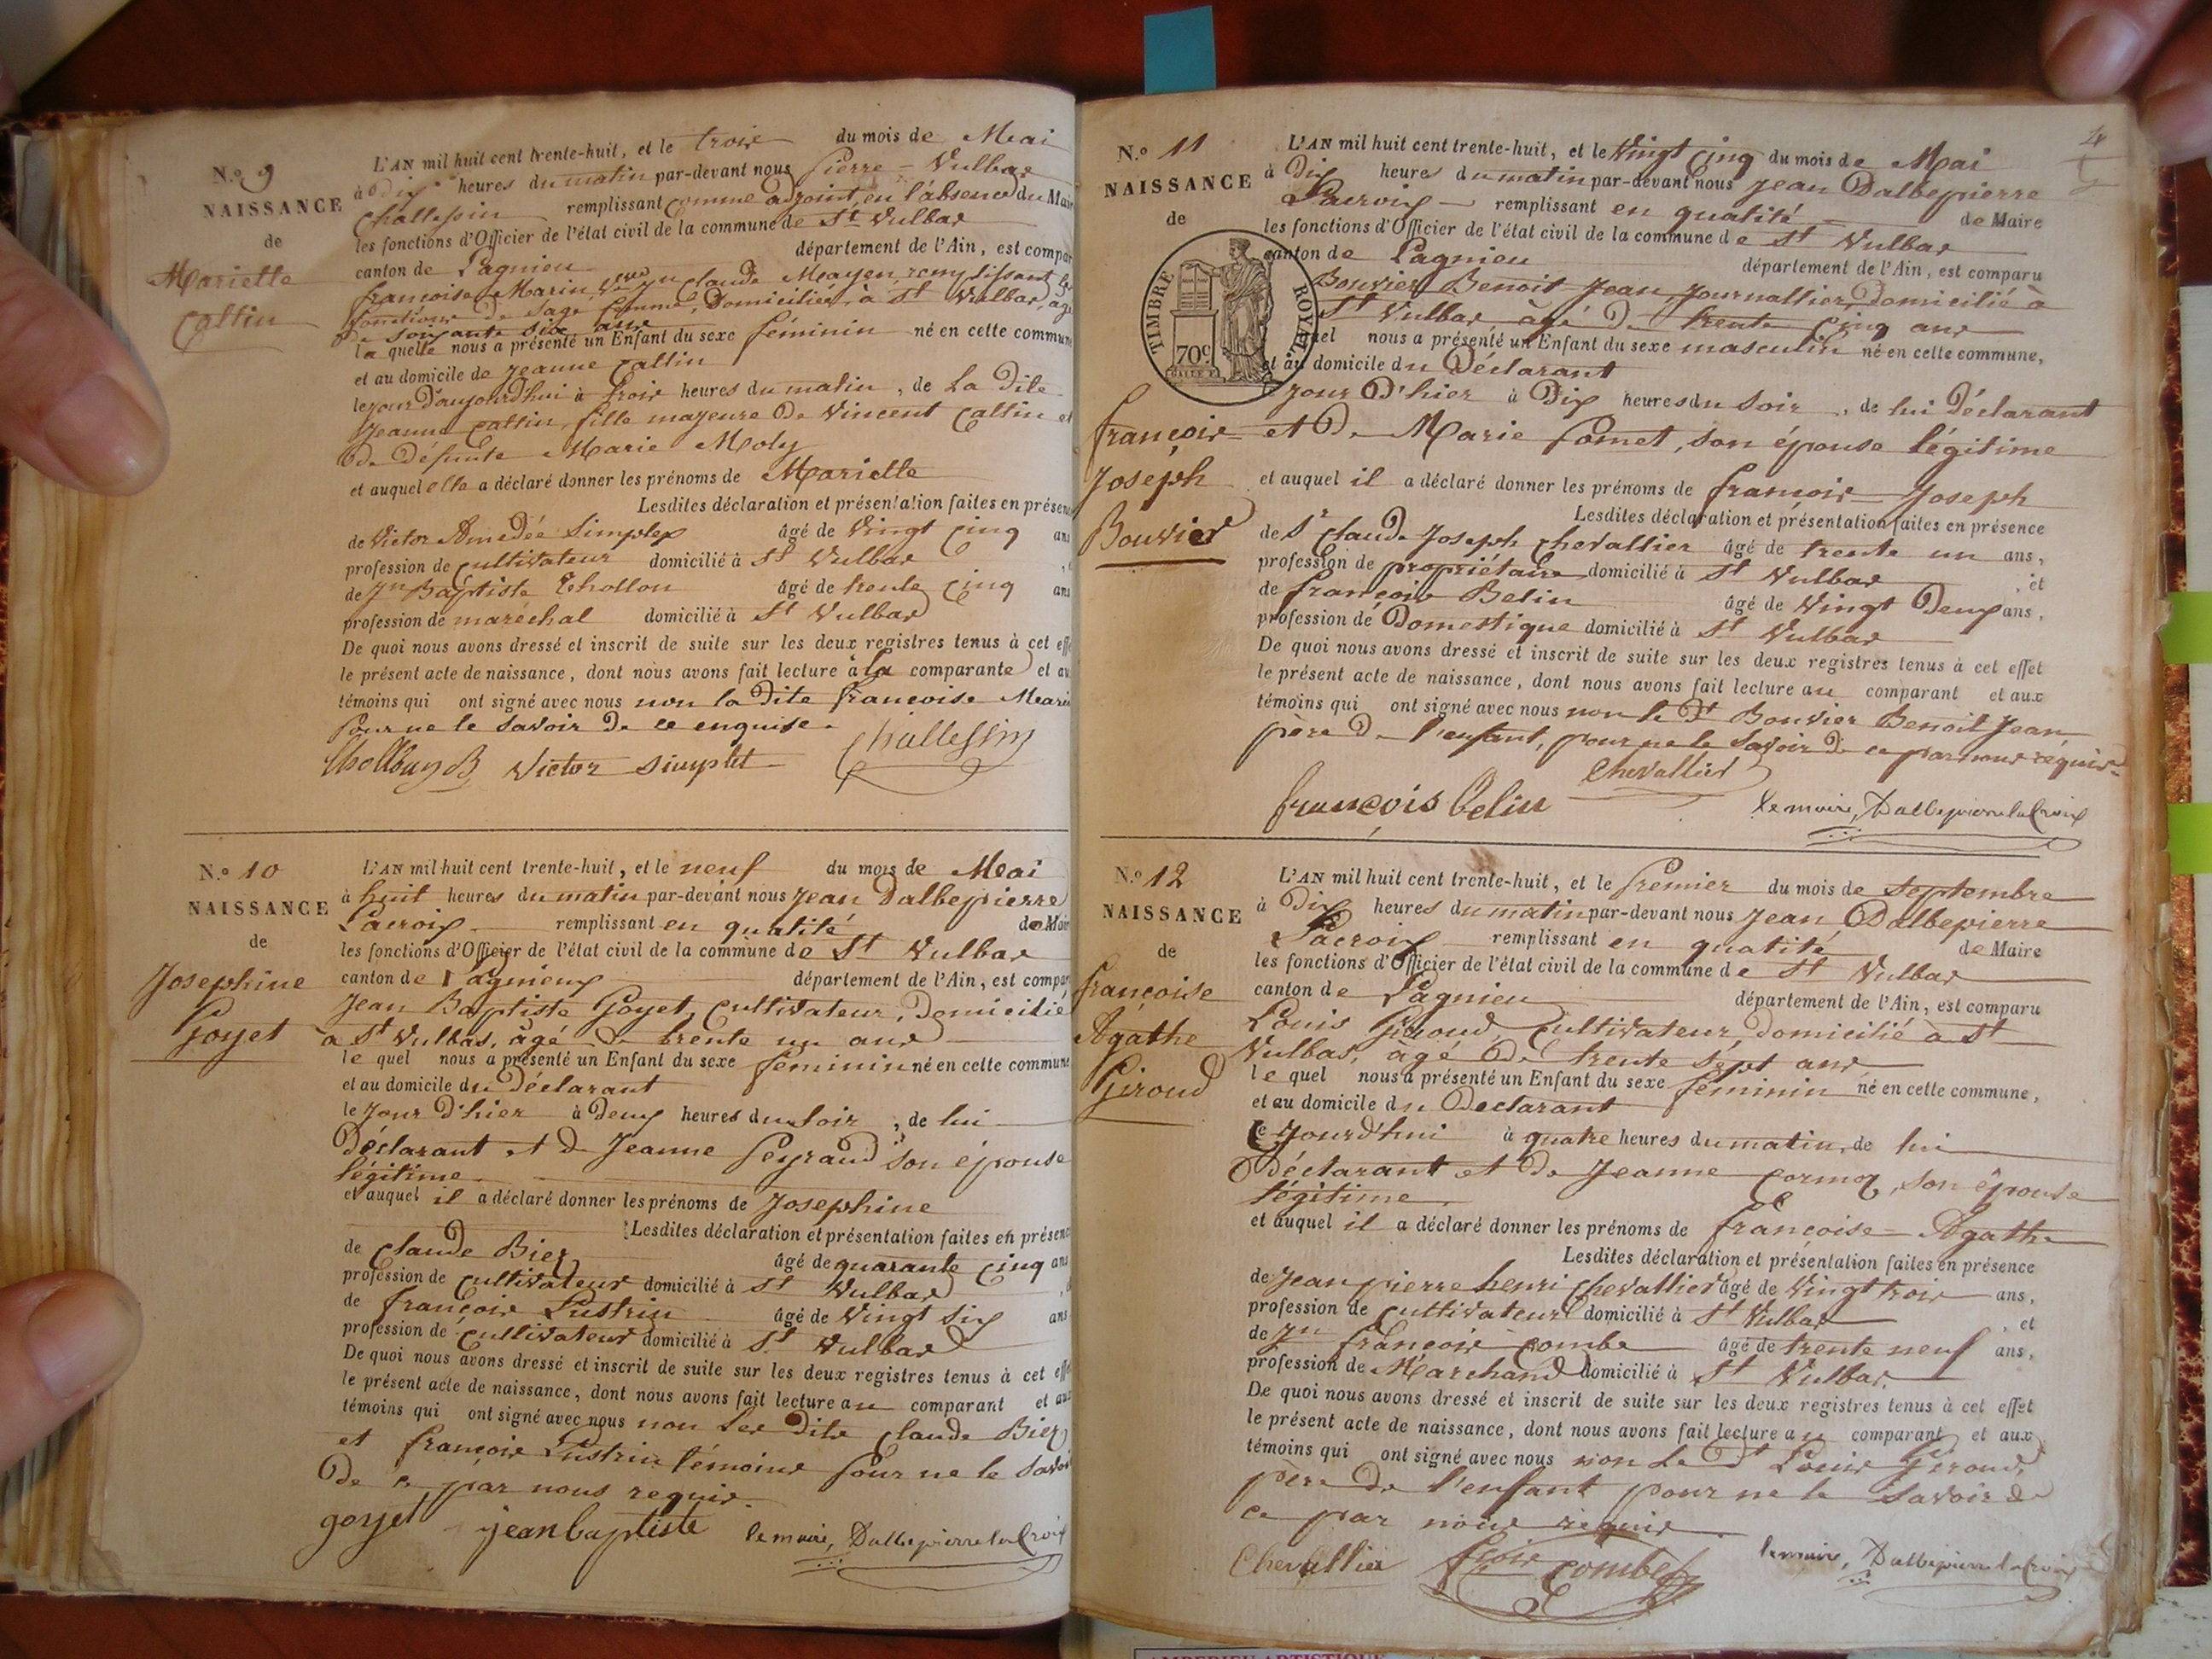 N.º 9
NAISSANCE
de
Mariette
Cattin
L'AN mil huit cent trente-huit, et le trois du mois de Mai
à Dix heures du matin par-devant nous Pierre Vulbas
Challessin remplissant comme adjoint, en l'absence du Mair
les fonctions d'Officier de l'état civil de la commune de St Vulbas
canton de Lagnieu département de l'Ain, est compar
françoise Marin, Vve claude Mayen, remplissant les
fonctions de Sage femme, Domiciliée à St Vulbas, agé
de Soixante six ans
la quelle nous a présenté un Enfant du sexe féminin né en cette commune
et au domicile de Jeanne Cattin
le jour d'aujourd'hui à trois heures du matin, de La Dite
Jeanne Cattin, fille majeure de Vincent Cattin et
de Défunte Marie Moly
et auquel elle a déclaré donner les prénoms de Mariette
Lesdites déclaration et présentation faites en présenc
de Victor Amedée Simplex âgé de Vingt Cinq ans
profession de Cultivateur domicilié à St Vulbas
de Jn Baptiste Thollon âgé de trente Cinq ans
profession de maréchal domicilié à St Vulbas
De quoi nous avons dressé et inscrit de suite sur les deux registres tenus à cet effe
le présent acte de naissance, dont nous avons fait lecture à la comparante et au
témoins qui ont signé avec nous non la Dite françoise Marin
Pour ne le Savoir De ce enquise.
Victor Simplet Challessin
N.º 10
NAISSANCE
de
Josephine
Goyet
L'AN mil huit cent trente-huit, et le neuf du mois de Mai
à huit heures du matin par-devant nous Jean Dalbepierre
Lacroix remplissant en qualité de Mair
les fonctions d'Officier de l'état civil de la commune de St Vulbas
canton de Lagnieux département de l'Ain, est compar
Jean Baptiste Goyet, Cultivateur, Domicilié
à St Vulbas, âgé de trente un ans
le quel nous a présenté un Enfant du sexe féminin né en cette commune
et au domicile du Déclarant
le Jour d'hier à Deux heures du Soir, de lui
Déclarant et de Jeanne Peyraud Son épouse
légitime
et auquel il a déclaré donner les prénoms de Josephine
Lesdites déclaration et présentation faites en présenc
de Claude Biez âgé de quarante Cinq ans
profession de Cultivateur domicilié à St Vulbas
de françois Lustrin âgé de Vingt Six ans
profession de Cultivateur domicilié à St Vulbas
De quoi nous avons dressé et inscrit de suite sur les deux registres tenus à cet effe
le présent acte de naissance, dont nous avons fait lecture au comparant et aux
témoins qui ont signé avec nous non Les Dits Claude Biez
et françois Lustrin témoins Pour ne le Savoi
De ce par nous requis.
goyet jean baptiste le maire, Dalbepierre la Croix
4
N.º 11
NAISSANCE
de
TIMBRE ROYAL
70c
françois
Joseph
Bouvier
L'AN mil huit cent trente-huit, et le Vingt Cinq du mois de Mai
à Dix heures du matin par-devant nous Jean Dalbepierre
Lacroix remplissant en qualité de Maire
les fonctions d'Officier de l'état civil de la commune de St Vulbas
canton de Lagnieu département de l'Ain, est comparu
Bouvier Benoit Jean, Journallier, Domicilié à
St Vulbas âgé De trente Cinq ans
quel nous a présenté un Enfant du sexe masculin né en cette commune,
et au domicile du Déclarant
le jour D'hier à Dix heures du Soir, de lui Déclarant
et De Marie Pomet, son épouse légitime
et auquel il a déclaré donner les prénoms de françois Joseph
Lesdites déclaration et présentation faites en présence
de Sr Claude Joseph Chevallier âgé de trente un ans,
profession de propriétaire domicilié à St Vulbas, et
de françois Belin âgé de Vingt Deux ans,
profession de Domestique domicilié à St Vulbas
De quoi nous avons dressé et inscrit de suite sur les deux registres tenus à cet effet
le présent acte de naissance, dont nous avons fait lecture au comparant et aux
témoins qui ont signé avec nous non le Dt Bouvier Benoit Jean
père De l'enfant, pour ne le Savoir De ce par nous requis
Chevallier
françois belin le maire, Dalbepierre la Croix
N.º 12
NAISSANCE
de
françoise
Agathe
Giroud
L'AN mil huit cent trente-huit, et le Premier du mois de Septembre
à Dix heures du matin par-devant nous Jean Dalbepierre
Lacroix remplissant en qualité de Maire
les fonctions d'Officier de l'état civil de la commune de St Vulbas
canton de Lagnieu département de l'Ain, est comparu
Louis Giroud, Cultivateur, domicilié à St
Vulbas, âgé De trente Sept ans
le quel nous a présenté un Enfant du sexe féminin né en cette commune,
et au domicile du Declarant
Ce Jourd'hui à quatre heures du matin, de lui
Déclarant et De Jeanne Cormoz, son épouse
légitime
et auquel il a déclaré donner les prénoms de françoise Agathe
Lesdites déclaration et présentation faites en présence
de Jean pierre henri Chevallier âgé de Vingt trois ans,
profession de Cultivateur domicilié à St Vulbas, et
de Jn françois Combe âgé de trente neuf ans,
profession de Marchand domicilié à St Vulbas.
De quoi nous avons dressé et inscrit de suite sur les deux registres tenus à cet effet
le présent acte de naissance, dont nous avons fait lecture au comparant et aux
témoins qui ont signé avec nous non Le Dt Louis Giroud,
père De l'enfant pour ne le Savoir de
ce par nous requis
Chevallier fçois Combe le maire, Dalbepierre la Croix